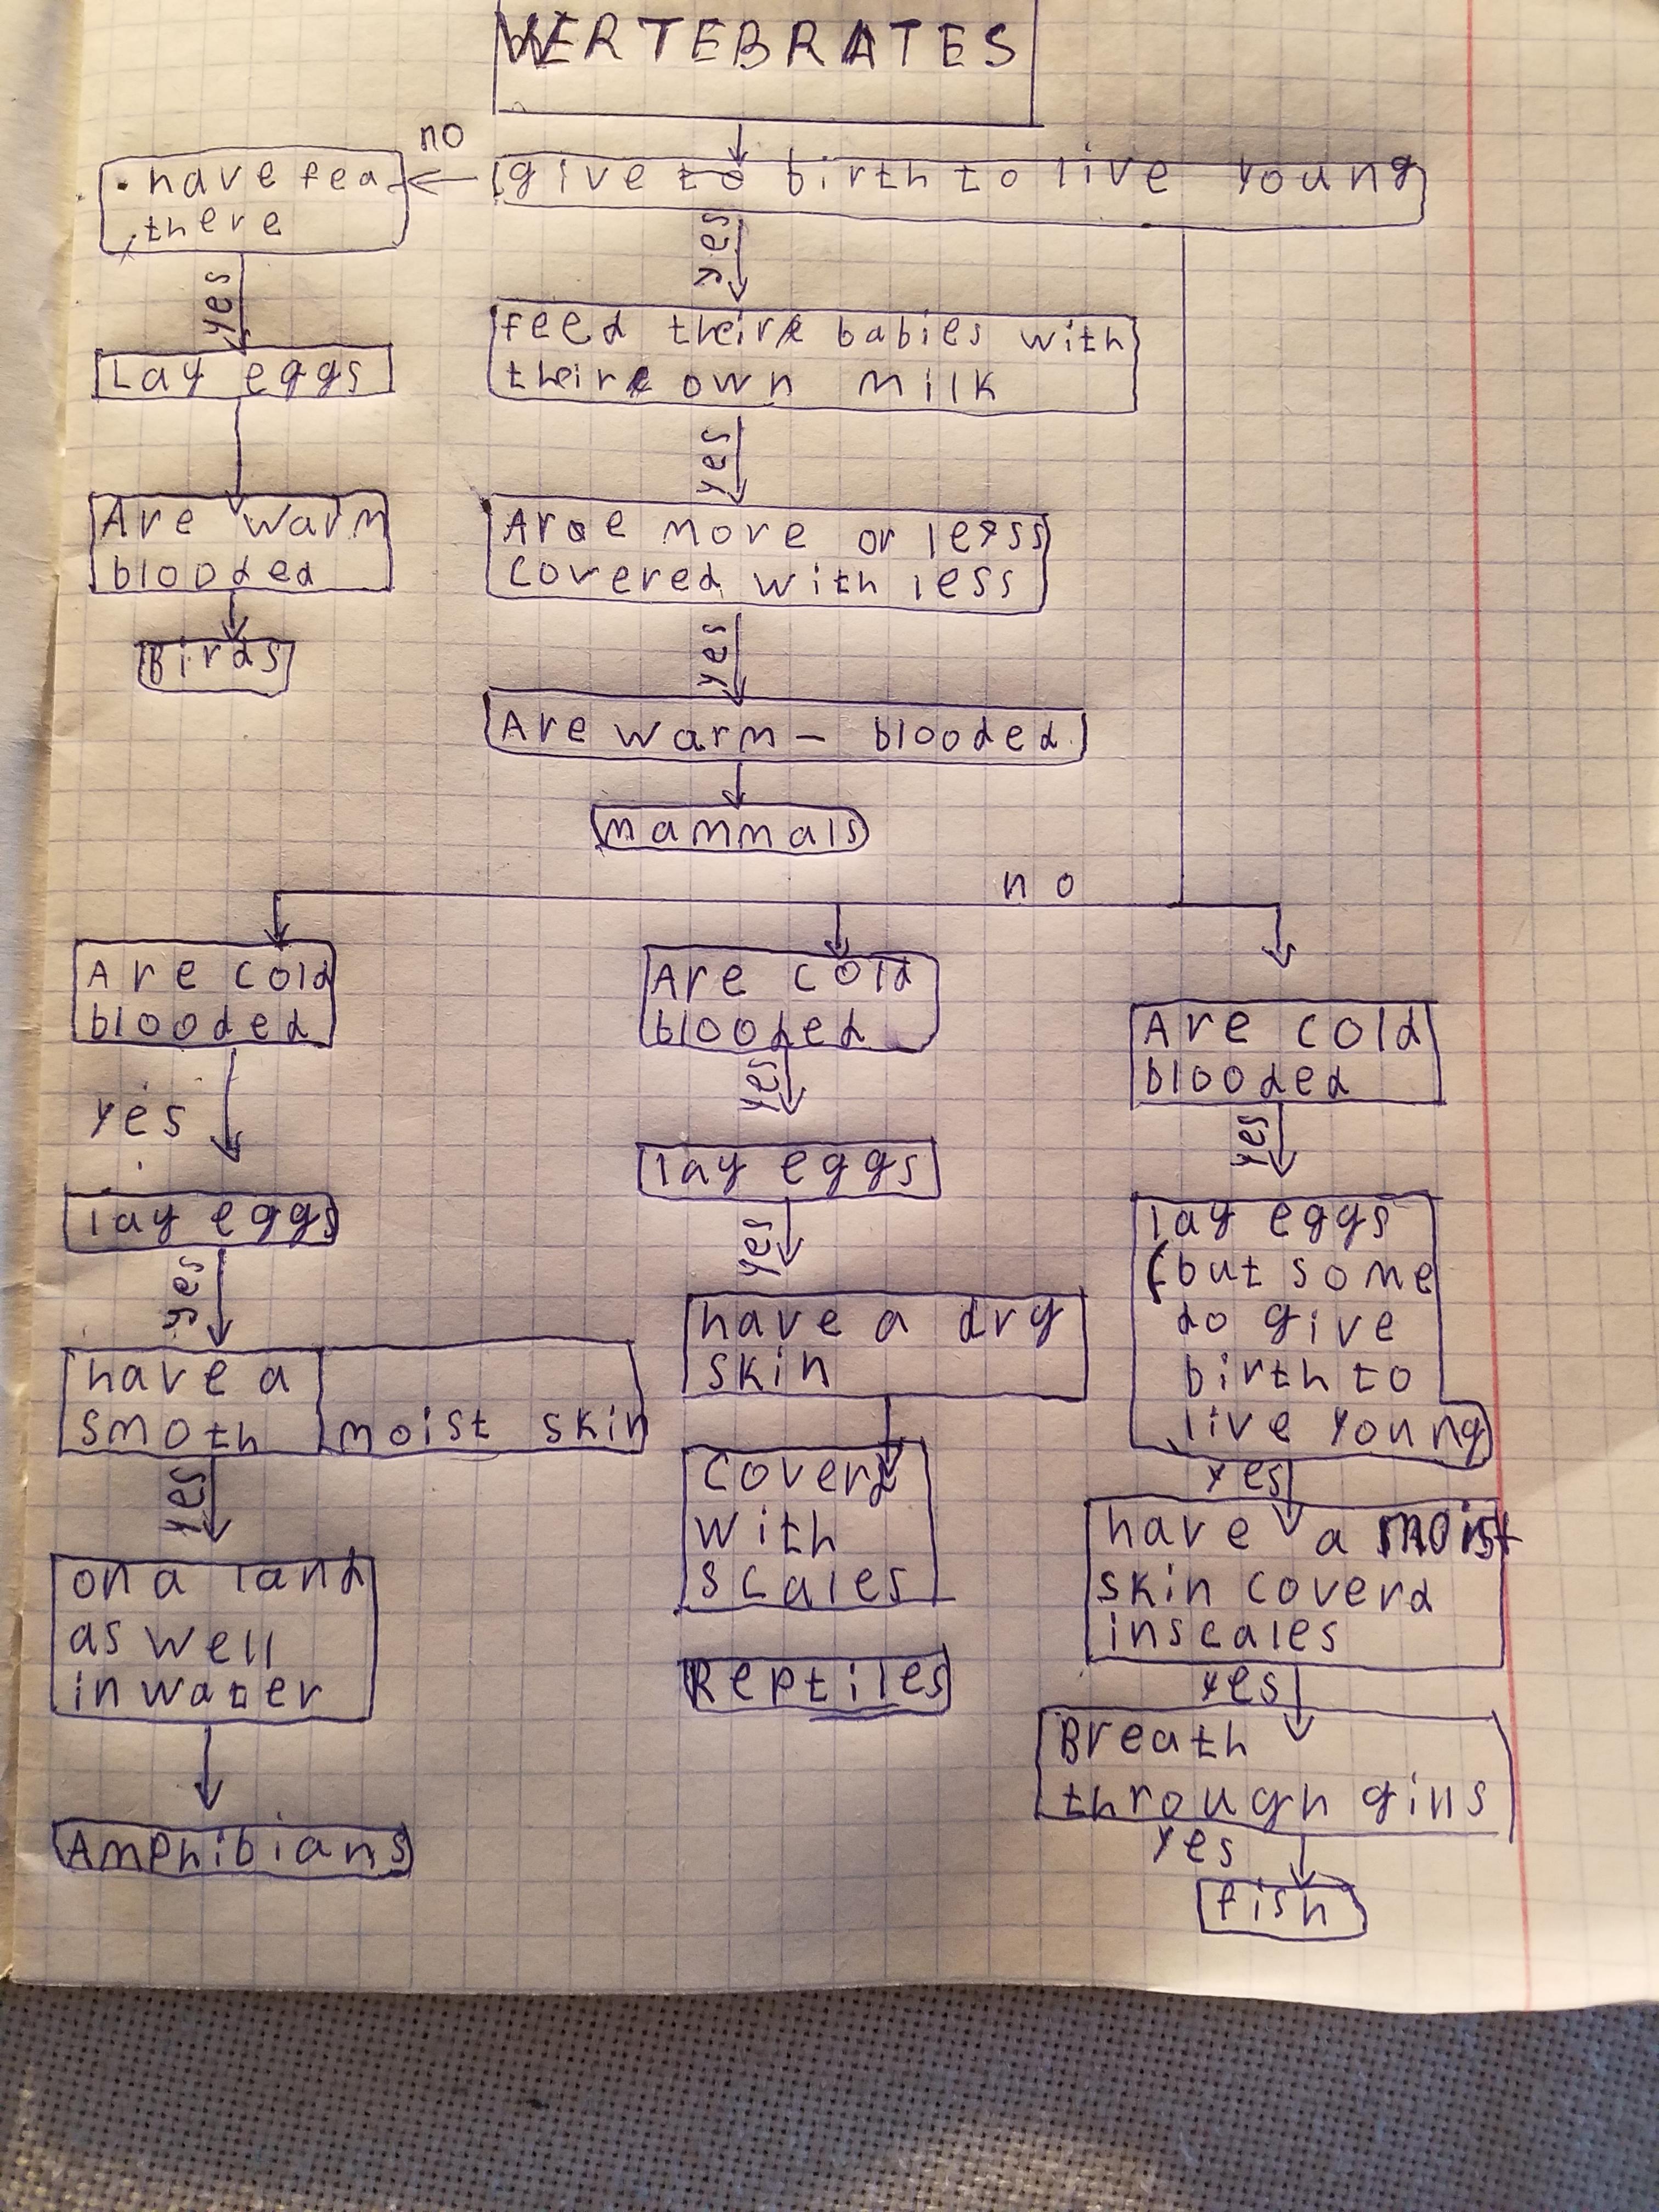 VERTEBRATES
no
have fea
there
give to birth to live young
yes
yes
Lay eggs
feed their babies with
their own milk
yes
Are warm
blooded
Are more or less
covered with less
Birds
yes
Are warm - blooded
mammals
no
Are cold
blooded
yes
lay eggs
yes
have a
smoth moist skin
yes
on a land
as well
in water
Amphibians
Are cold
blooded
yes
lay eggs
yes
have a dry
skin
Coverd
with
scales
Reptiles
Are cold
blooded
yes
lay eggs
(but some
do give
birth to
live young
yes
have a moist
skin coverd
inscales
yes
Breath
through gills
yes
fish